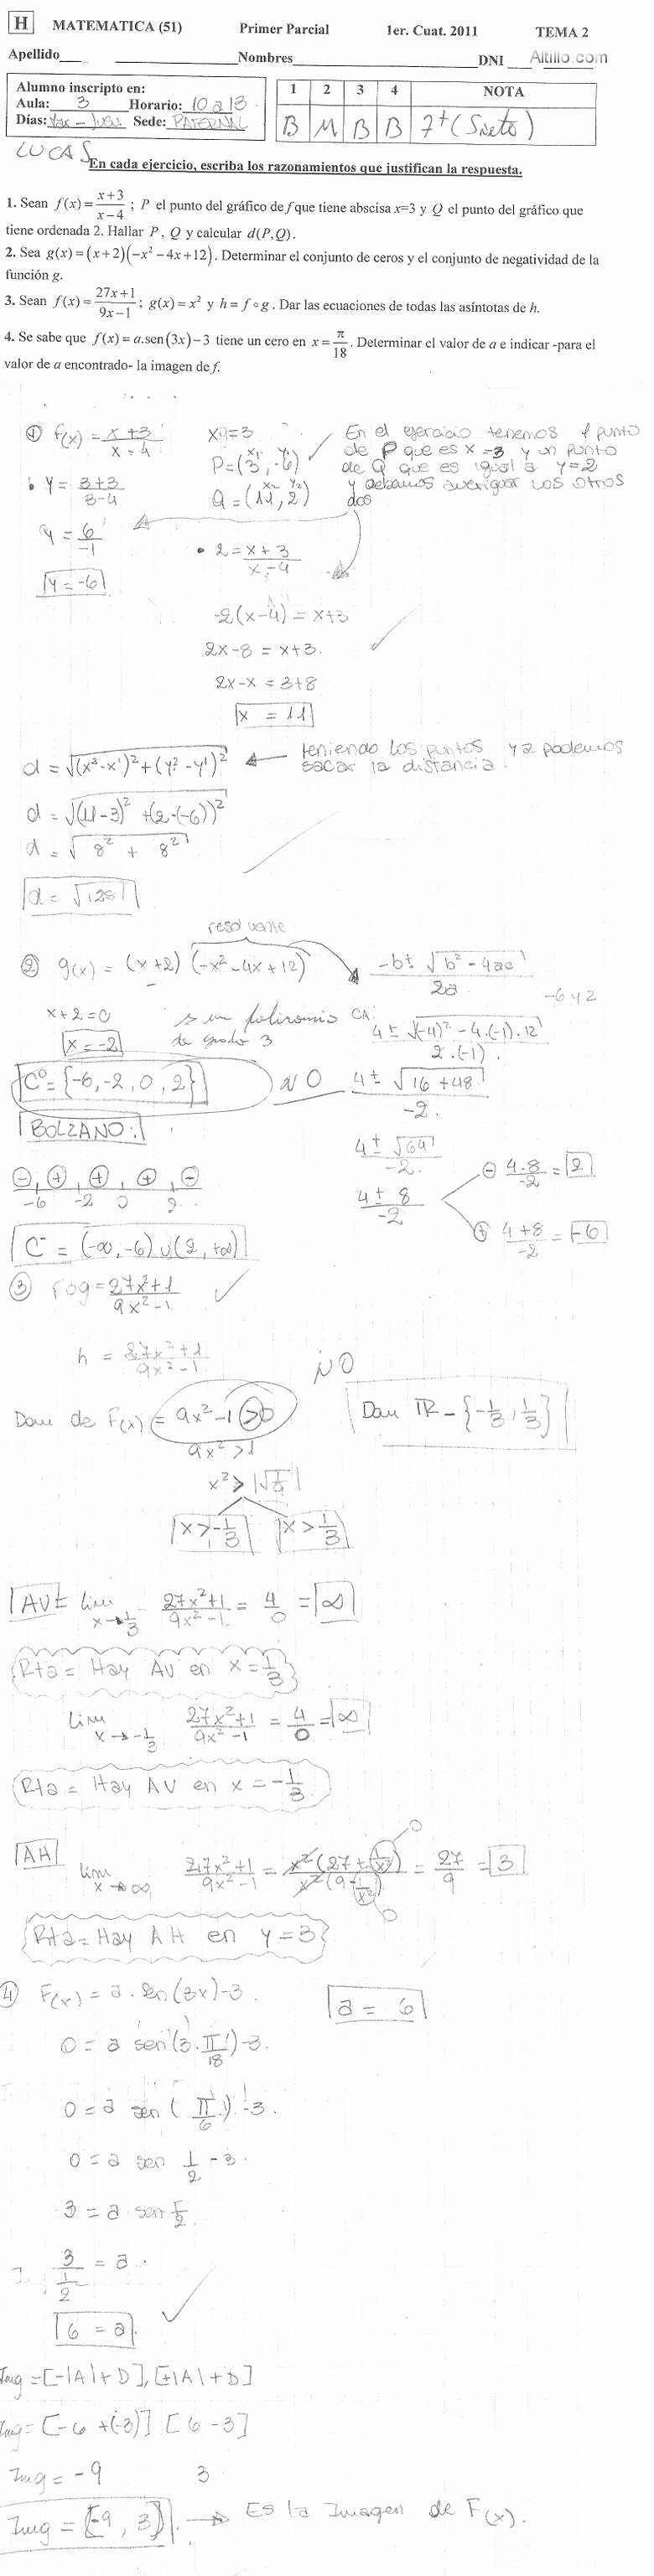 H MATEMATICA (51) Primer Parcial 1er. Cuat. 2011 TEMA 2
Apellido Nombres DNI Altillo.com
Alumno inscripto en:
Aula: 3 Horario: 10 a 13
Días: Sede: PATERNAL
1 2 3 4 NOTA
B M B B 7+ (Siete)
LUCAS
En cada ejercicio, escriba los razonamientos que justifican la respuesta.
1. Sean f(x) = (x+3)/(x−4) ; P el punto del gráfico de f que tiene abscisa x=3 y Q el punto del gráfico que
tiene ordenada 2. Hallar P, Q y calcular d(P,Q).
2. Sea g(x) = (x+2)(−x² −4x+12). Determinar el conjunto de ceros y el conjunto de negatividad de la
función g.
3. Sean f(x) = (27x+1)/(9x−1) ; g(x) = x² y h = f∘g. Dar las ecuaciones de todas las asíntotas de h.
4. Se sabe que f(x) = a.sen(3x)−3 tiene un cero en x = π/18. Determinar el valor de a e indicar -para el
valor de a encontrado- la imagen de f.
① f(x) = (x+3)/(x-4)
y = (3+3)/(3-4)
y = 6/-1
y = -6
P = (3, -6)
Q = (11, 2)
En el ejercicio tenemos 1 punto
de P que es x = 3 y un punto
de Q que es igual a y=2
y debemos averiguar los otros
dos
• 2 = (x+3)/(x-4)
2(x-4) = x+3
2x-8 = x+3.
2x-x = 3+8
x = 11
d = √((x²-x¹)² + (y²-y¹)²)
teniendo los puntos ya podemos
sacar la distancia.
d = √((11-3)² + (2-(-6))²)
d = √(8² + 8²)
d = √128
resolvente
② g(x) = (x+2) (-x²-4x+12)
(-b ± √(b²-4ac))/2a
-6 y 2
x+2=0
x=-2
es un polinomio
de grado 3
CA:
(4 ± √((-4)²-4.(-1).12))/(2.(-1))
C⁰ = {-6,-2,0,2} NO
(4 ± √(16+48))/-2.
BOLZANO:
(4 ± √64)/-2.
(4 ± 8)/-2
⊖ (4-8)/-2 = 2
⊕ (4+8)/-2 = -6
⊖ ⊕ ⊕ ⊕ ⊖
-6 -2 0 2
C⁻ = (-∞,-6) ∪ (2,+∞)
③ Fog = (27x²+1)/(9x²-1)
h = (27x²+1)/(9x²-1)
NO
Dom de F(x) = 9x²-1 > 0
Dom ℝ - {-1/3, 1/3}
9x² > 1
x² > |√(1/9)|
x > -1/3 x > 1/3
AV= lim x→1/3 (27x²+1)/(9x²-1) = 4/0 = ∞
Rta = Hay AV en x = 1/3
lim x→-1/3 (27x²+1)/(9x²-1) = 4/0 = ∞
Rta = Hay AV en x = -1/3
AH lim x→∞ (27x²+1)/(9x²-1) = x²(27+1/x²)/x²(9-1/x²) = 27/9 = 3
Rta = Hay AH en y = 3
④ F(x) = a. sen(3x)-3.
a = 6
0 = a sen(3.π/18)-3.
0 = a sen (π/6)-3.
0 = a sen 1/2 -3.
3 = a sen 1/2
3/(1/2) = a
6 = a
Img = [-|A|+D], [+|A|+D]
Img = [-6+(-3)] [6-3]
Img = -9 3
Img = [-9, 3] → Es la Imagen de F(x).